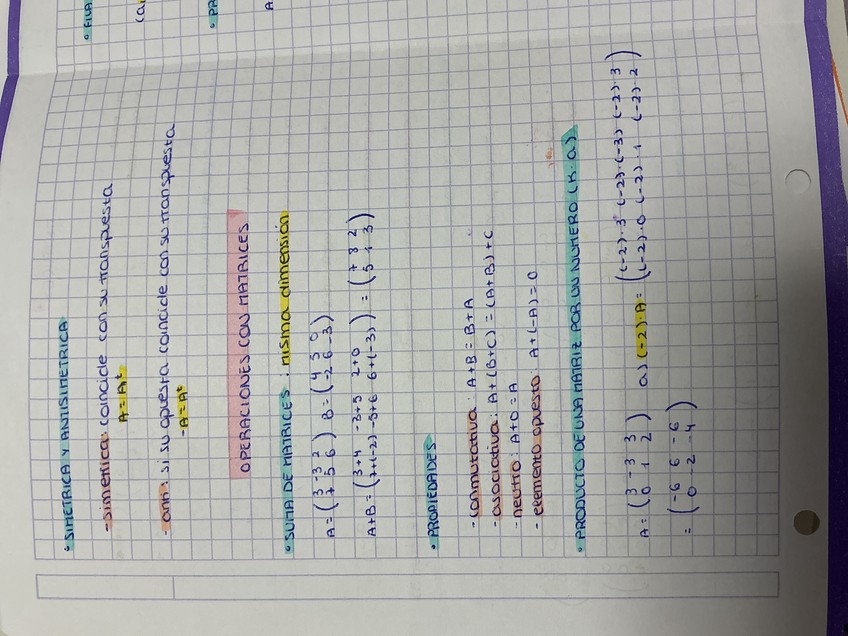 • SIMETRICA Y ANTISIMETRICA
- simetrica: coincide con su transpuesta
A = Aᵗ
- anti: si su opuesta coincide con su transpuesta
-A = Aᵗ
OPERACIONES CON MATRICES
• SUMA DE MATRICES: misma dimensión
A = (3 -3 2 / 7 5 6) B = (4 5 0 / -2 6 -3)
A+B = (3+4 -3+5 2+0 / 7+(-2) -5+6 6+(-3)) = (7 2 2 / 5 1 3)
• PROPIEDADES
- conmutativa: A+B = B+A
- asociativa: A+(B+C) = (A+B)+C
- neutro: A+0 = A
- elemento opuesto: A+(-A) = 0
• PRODUCTO DE UNA MATRIZ POR UN NUMERO (K·a)
A = (3 -3 3 / 0 1 2) a) (-2)·A = ((-2)·3 (-2)·(-3) (-2)·3 / (-2)·0 (-2)·1 (-2)·2)
= (-6 6 -6 / 0 -2 -4)
• FILA
(a
• PR
A